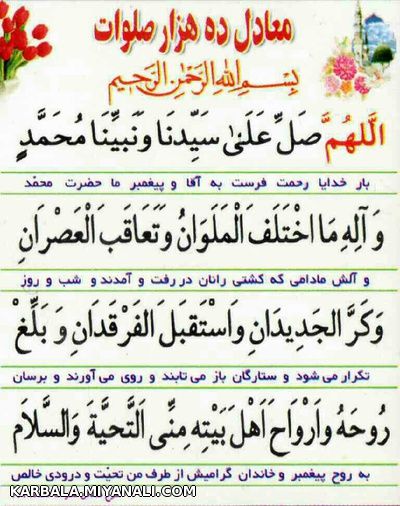 معادل ده هزار صلوات
بِسْمِ اللهِ الرَّحْمٰنِ الرَّحيمِ
اَللّهُمَّ صَلِّ عَلَىٰ سَيِّدِنَا وَنَبِيِّنَا مُحَمَّدٍ
بار خدایا رحمت فرست به آقا و پیغمبر ما حضرت محمّد
وَ آلِهِ مَا اخْتَلَفَ الْمَلَوَانُ وَتَعَاقَبَ الْعَصْرَانِ
و آلش مادامی که کشتی رانان در رفت و آمدند و شب و روز
وَكَرَّ الجَدِيدَانِ وَاسْتَقبَلَ الفَرْقَدَانِ وَ بَلِّغْ
تکرار می شود و ستارگان باز می تابند و روی می آورند و برسان
رُوحَهُ وَاَرْوَاحَ اَهْلِ بَيْتِه مِنِّى اَلتَّحيَّةَ وَالسَّلَامَ
به روح پیغمبر و خاندان گرامیش از طرف من تحیّت و درودی خالص
KARBALA.MIYANALI.COM